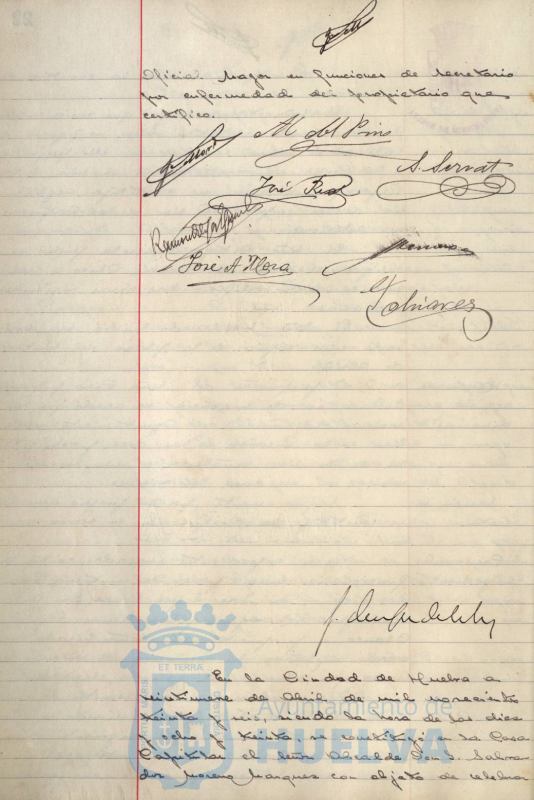 Oficial Mayor en funciones de Secretario
por enfermedad del propietario que
certifico.
M. del Pino
S. Servat
José Real
José A. Mora
J. Olivares
En la Ciudad de Huelva a
veintinueve de Abril de mil novecientos
treinta y seis, siendo la hora de las diez
y ocho y treinta se constituyó en la Casa
Capitular el Señor Alcalde Don Salva-
dor Moreno Marquez con objeto de celebrar
ET TERRÆ
Ayuntamiento de
HUELVA